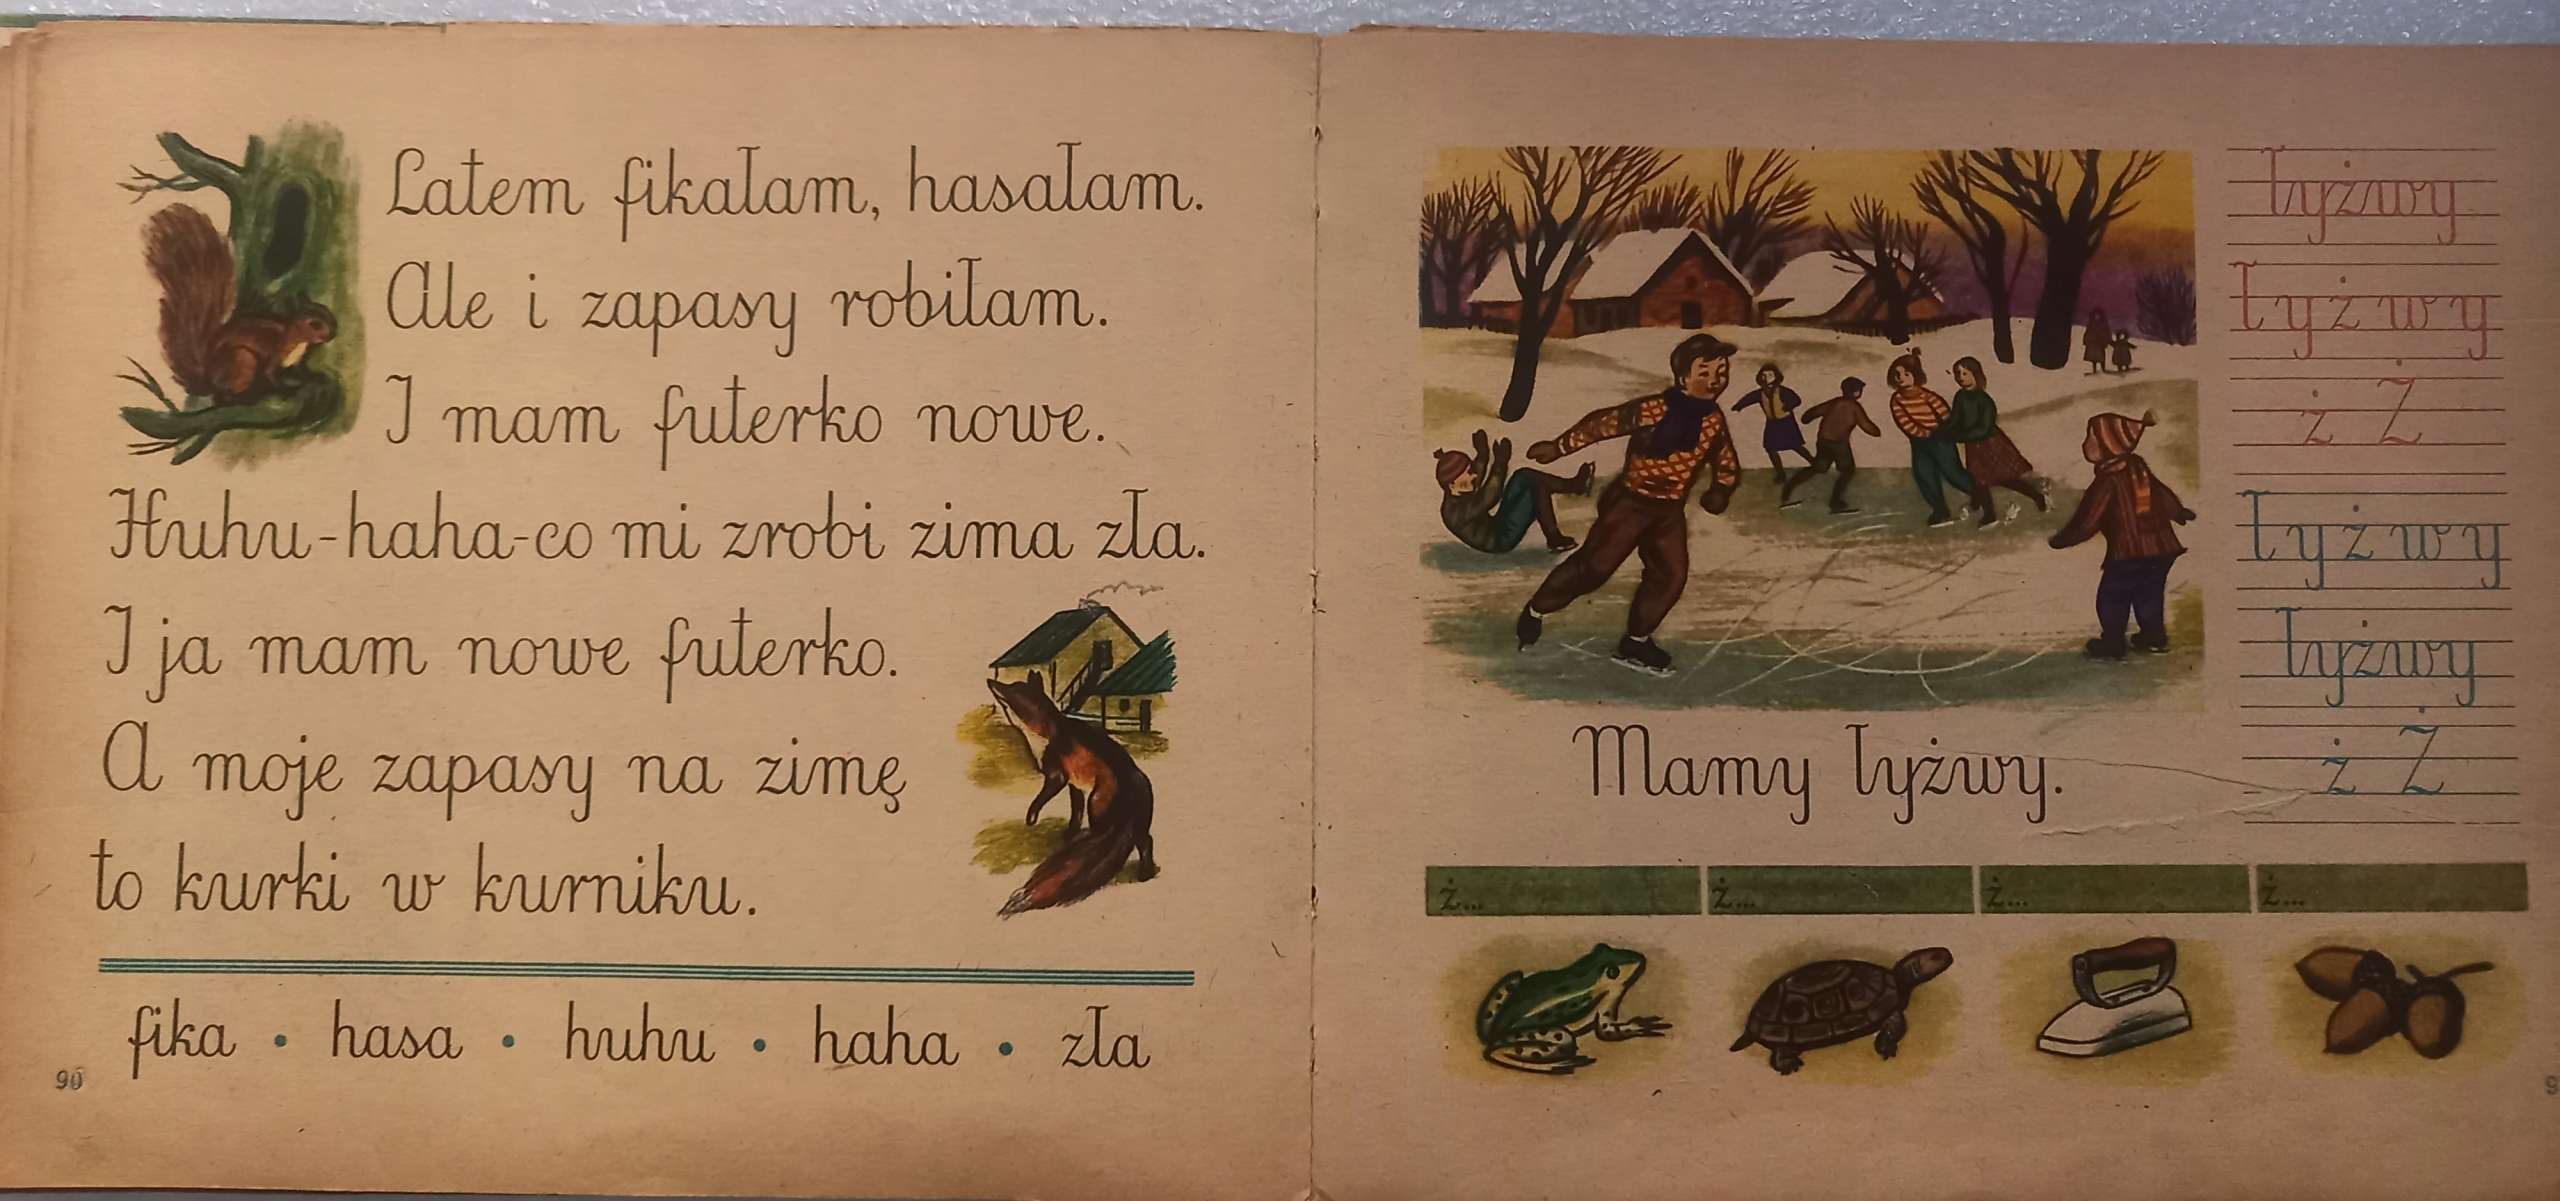 Latem fikałam, hasałam.
Ale i zapasy robiłam.
I mam futerko nowe.
Huhu-haha-co mi zrobi zima zła.
I ja mam nowe futerko.
A moje zapasy na zimę
to kurki w kurniku.
fika • hasa • huhu • haha • zła
90
łyżwy
łyżwy
ż Ż
łyżwy
łyżwy
ż Ż
Mamy łyżwy.
ż... ż... ż... ż...